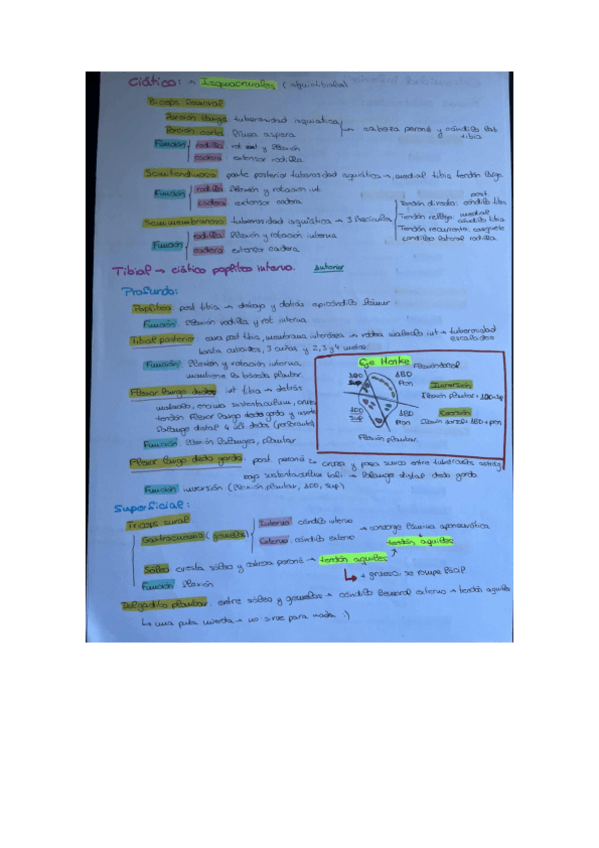 Ciático: → Isquiocrurales (isquiotibiales)
Bíceps femoral
Porción larga tuberosidad isquiática
Porción corta línea aspera
cabeza peroné y cóndilo lat. tibia
Función rodilla: rot ext y flexión
cadera: extensor rodilla.
Semitendinoso: parte posterior tuberosidad isquiática → medial tibia, tendón largo
Función rodilla: flexión y rotacion int.
cadera: extensor cadera
Semimembranoso: tuberosidad isquiática → 3 fascículos
Tendón directo: post cóndilo tibia
Tendón reflejo: medial cóndilo tibia
Tendón recurrente: casquete condíleo lateral rodilla.
Función rodilla: flexión y rotacion interna
cadera: extensor cadera
Tibial → ciático poplíteo interno.
Profundo:
Poplíteo: post tibia → debajo y detrás epicóndilo fémur
Función: flexión rodilla y rot interna
Tibial posterior: cara post tibia, membrana interósea → rodea maleolo int → tuberosidad escafoides
cuboides, 3 cuñas y 2, 3 y 4 metas.
Función: flexión y rotación interna,
mantiene la bóveda plantar.
Flexor largo dedos: int tibia → detrás
maleolo, encima sustentaculum, cruza
tendón flexor largo dedo gordo y
falange distal 4 últ. dedos (perforantes)
Función: flexión falanges, plantar
Ejo Henke
Flexión dorsal
ADD
sup
ABD
Pron
ADD
sup
ABD
Pron
Flexión plantar.
Inversión
Flexión plantar + ADD + sup
Eversión
Flexión dorsal + ABD + pron
Flexor largo dedo gordo: post peroné → cruza y pasa surco entre tubérculos astrág.
bajo sustentaculum tali → falange distal dedo gordo
Función: inversión (flexión plantar, ADD, sup)
Superficial:
Tríceps sural
Gastrocnemio (gemelos)
Interno: cóndilo interno
Externo: cóndilo externo
→ converge lámina aponeurótica
tendón aquiles
Sóleo: cresta sóleo y cabeza peroné → tendón aquiles
+ grueso: se rompe fácil
Función: flexión
Delgadito plantar: entre sóleo y gemelos → cóndilo femoral externo → tendón aquiles
↳ una puta mierda → no sirve para nada :)